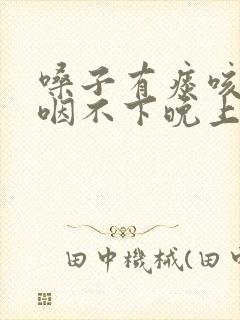 嗓子有痰咳
咽不下晚上
田中機械(田中